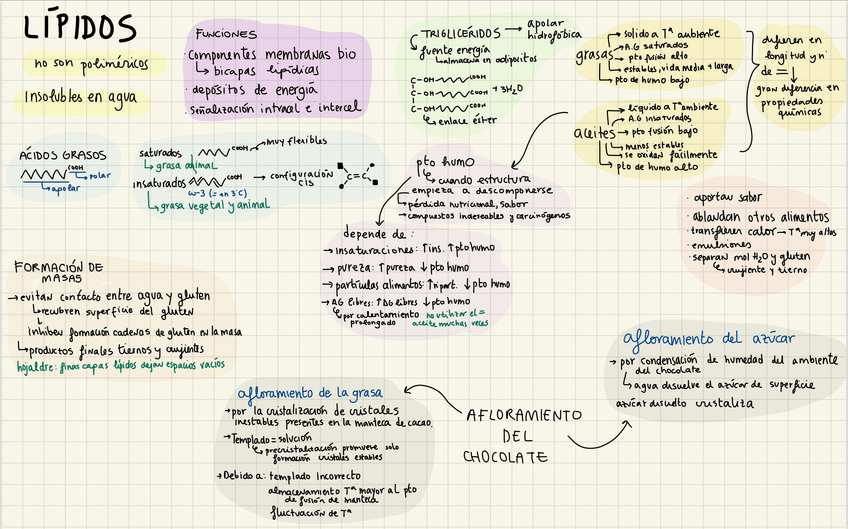 LÍPIDOS
no son poliméricos
Insolubles en agua
FUNCIONES
· Componentes membranas bio
↳ bicapas lipídicas
· depósitos de energía
· señalización intracel e intercel
TRIGLICÉRIDOS → apolar
hidrofóbica
fuente energía
↳ almacena en adipocitos
C-OH COOH
C-OH COOH + 3H2O
C-OH COOH
↳ enlace éster
grasas
→ solido a Tª ambiente
→ A.G saturados
→ pto fusión alto
→ estables, vida media + larga
→ pto de humo bajo
aceites
→ líquido a Tª ambiente
→ A.G insaturados
→ pto fusión bajo
→ menos estables
→ se oxidan facilmente
→ pto de humo alto
difieren en
longitud y nº
de =
↓
gran diferencia en
propiedades
químicas
ÁCIDOS GRASOS
COOH → polar
↳ apolar
saturados COOH → muy flexibles
↳ grasa animal
insaturados COOH → configuración
cis
C=C
ω-3 (= en 3ºC)
↳ grasa vegetal y animal
pto humo
↳ cuando estructura
empieza a descomponerse
→ pérdida nutricional, sabor
→ compuestos indeseables y carcinógenos
depende de:
→ insaturaciones: ↑ins. ↑pto humo
→ pureza: ↑pureza ↓ pto humo
→ partículas alimentos: ↑nºpart. ↓ pto humo
→ AG libres: ↑AG libres ↓ pto humo
↳ por calentamiento
prolongado
no utilizar el =
aceite muchas veces
· aportan sabor
· ablandan otros alimentos
· transfieren calor → Tª muy altas
· emulsiones
· separan mol H2O y gluten
↳ crujiente y tierno
FORMACIÓN DE
MASAS
→ evitan contacto entre agua y gluten
↳ recubren superficie del gluten
↳
inhiben formación cadenas de gluten en la masa
↳ productos finales tiernos y crujientes
hojaldre: finas capas lípidos dejan espacios vacíos
afloramiento de la grasa
→ por la cristalización de cristales
inestables presentes en la manteca de cacao.
→ Templado = solución
↳ precristalización promueve solo
formación cristales estables
→ Debido a: templado incorrecto
almacenamiento Tª mayor al pto
de fusión de manteca
fluctuación de Tª
AFLORAMIENTO
DEL
CHOCOLATE
afloramiento del azúcar
→ por condensación de humedad del ambiente
del chocolate
↳ agua disuelve el azúcar de superficie
azúcar disuelto cristaliza